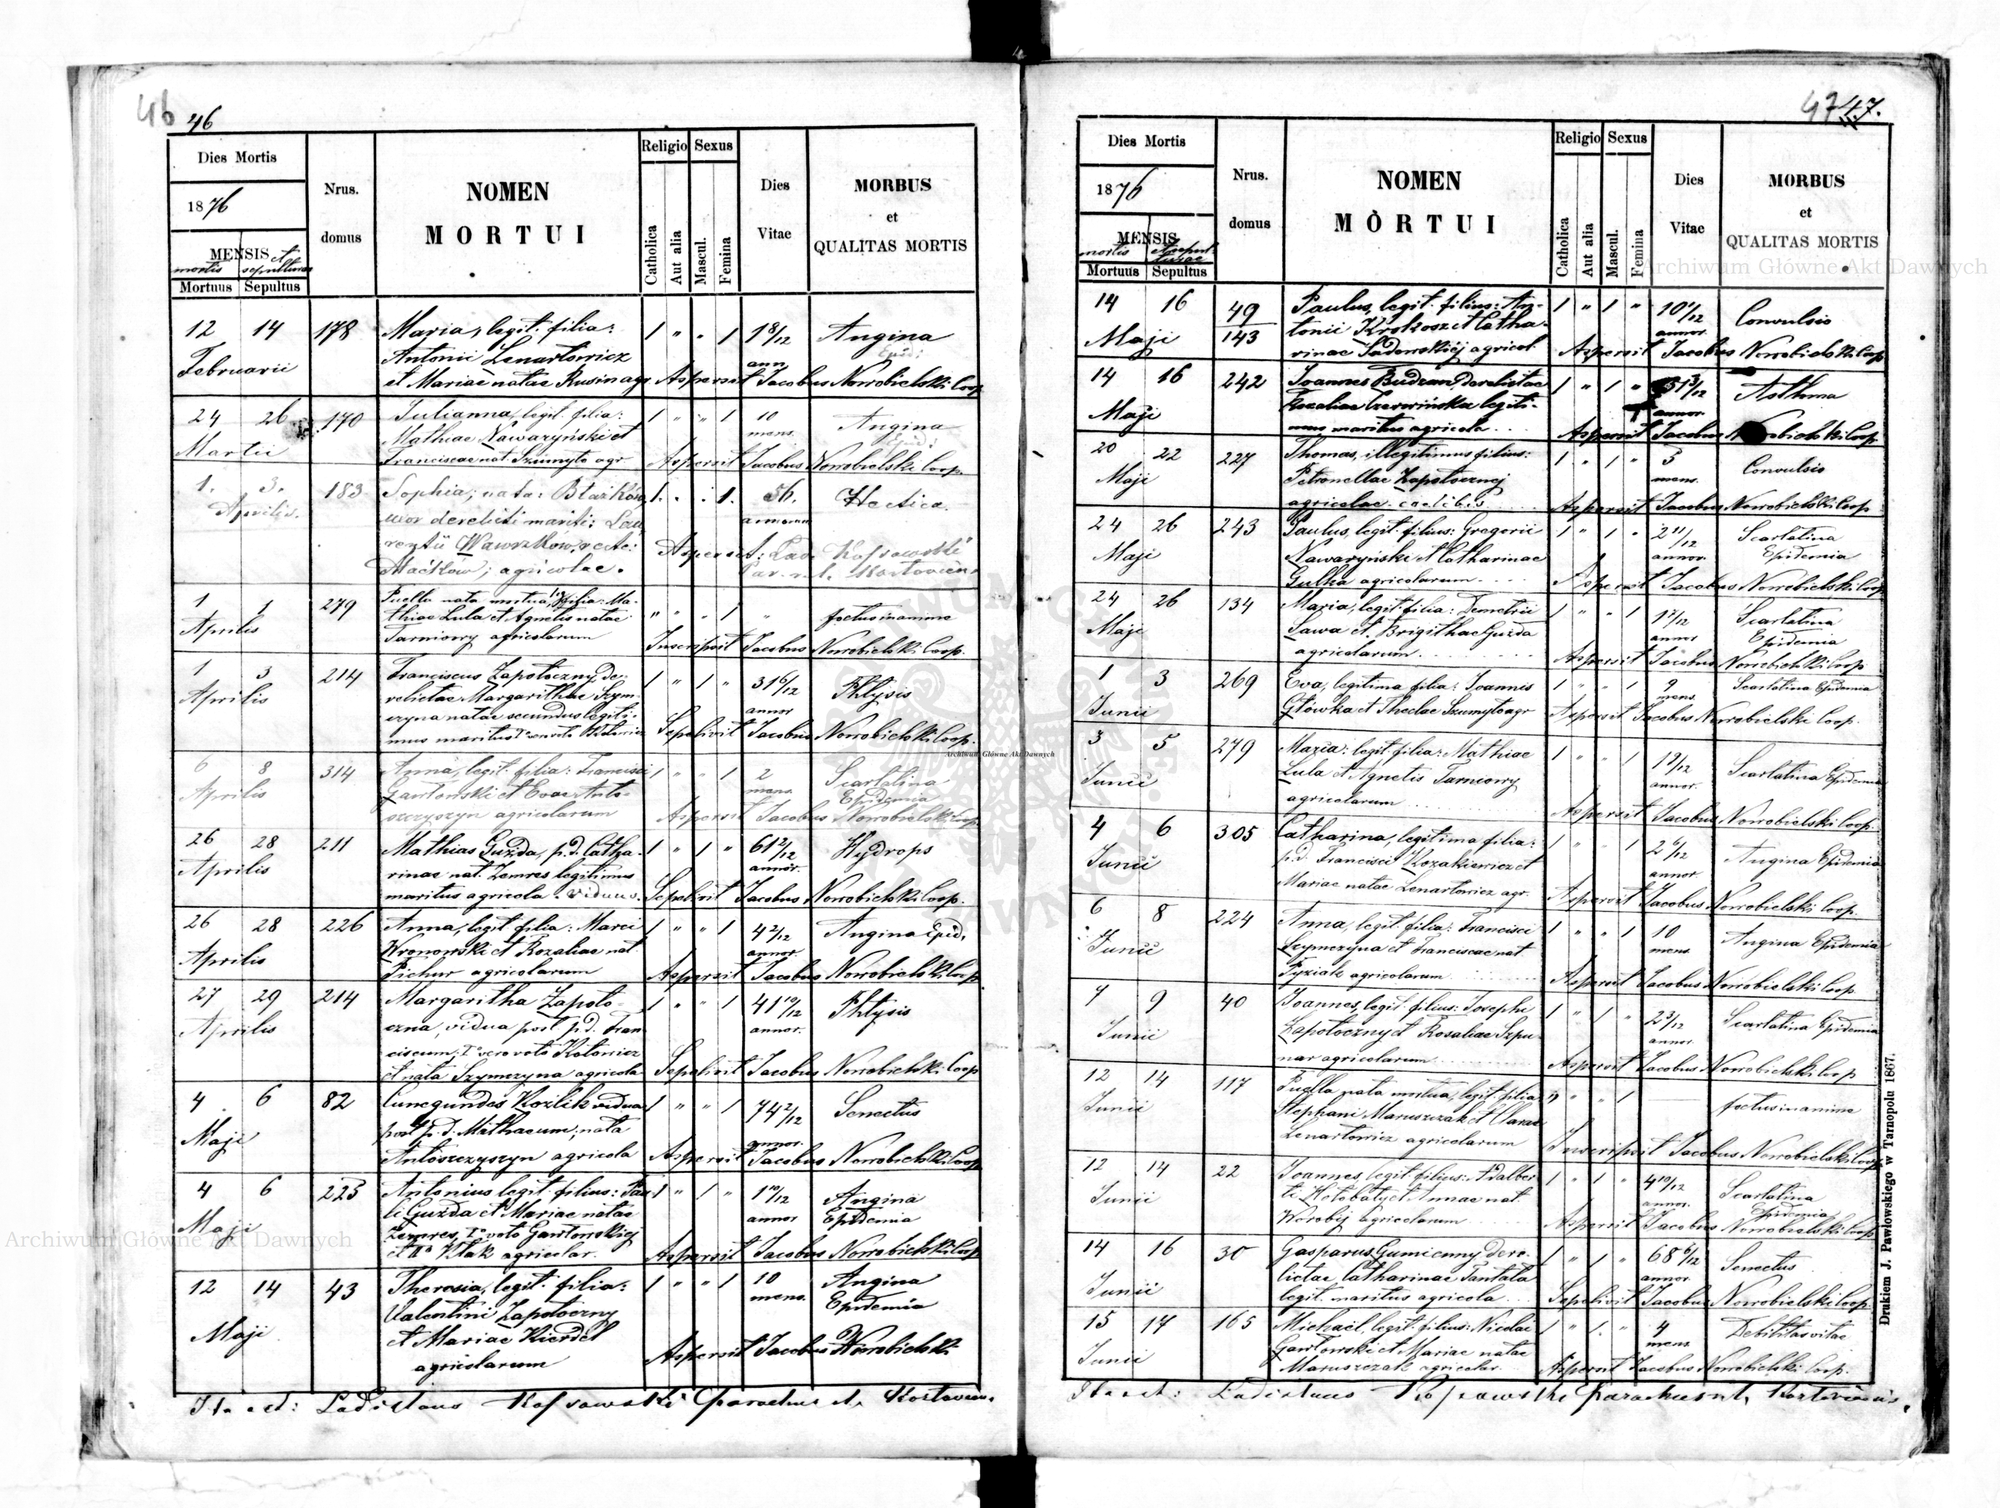 46 46
Dies Mortis
1876
MENSIS et
mortis sepulturae
Mortuus Sepultus
Nrus.
domus
NOMEN
MORTUI
Religio
Catholica
Aut alia
Sexus
Mascul.
Femina
Dies
Vitae
MORBUS
et
QUALITAS MORTIS
12 14 178 Maria, legit. filia: 1 " " 1 1 8/12 Angina
Antonii Lenartowicz ann. Epid:
Februarii et Mariae natae Rusin agr Aspersit Jacobus Nowobielski Coop
24 26 170 Julianna, legit. filia: 1 " " 1 10 Angina
Mathiae Nawaryński et mens. Epid:
Martii Franciscae nat. Szumyto agr Aspersit Jacobus Nowobielski Coop.
1. 3. 183. Sophia, nata: Blaźków, 1. . . 1. 56. Hectica.
Aprilis. uxor derelicti mariti: Lau annorum
rentii Wawrzków, recte:
Maćków; agricolae. Aspersit: Lad. Kossowski
Par. r. l. Kozlovien.
1 1 279 Puella nata mortua, filia: Ma- " " 1 " foetus inanime
Aprilis thiae Lula et Agnetis natae
Tarniowy agricolarum Inscripsit Jacobus Nowobielski Coop.
1 3 214 Franciscus Zapotoczny, de- 1 " 1 " 31 6/12 Phtysis
Aprilis relictae Margarithae Szym- annor
czyna natae secundus legiti-
mus maritus Sepelivit Jacobus Nowobielski Coop.
6 8 314 Anna, legit. filia: Francisci 1 " " 1 2 Scarlatina
Aprilis Gawłowski et Evae Anto- mens. Epidemia
szczyszyn agricolarum Aspersit Jacobus Nowobielski Coop
26 28 211 Mathias Guzda, p. d. Catha- 1 " 1 " 61 2/12 Hydrops
Aprilis rinae nat. Zemres legitimus annor.
maritus agricola. viduus. Sepelivit Jacobus Nowobielski Coop.
26 28 226 Anna, legit filia: Marci 1 " " 1 4 2/12 Angina Epid.
Wronowski et Rozaliae nat. annor.
Aprilis Pichur agricolarum Aspersit Jacobus Nowobielski Coop
27 29 214 Margaritha Zapoto- 1 " " 1 41 10/12 Phtysis
Aprilis czna, vidua post p. d. Fran annor.
ciscum, 1o vero voto Kotowicz
et nata Szymczyna agricola Sepelivit Jacobus Nowobielski Coop
4 6 82 Cunegundes Kozlik vidua 1 " " 1 74 2/12 Senectus
Maji post p. d. Mathaeum, nata annor.
Antoszczyszyn agricola Aspersit Jacobus Nowobielski Coop
4 6 223 Antonius legit. filius: Pau- 1 " 1 " 1 10/12 Angina
Maji li Guzda et Mariae natae annor. Epidemia
Zemres, 1o voto Gawłowskiej
et agricolar. Aspersit Jacobus Nowobielski Coop
12 14 43 Theresia, legit. filia: 1 " " 1 10 Angina
Valentini Zapotoczny mens. Epidemia
Maji et Mariae Kierdel
agricolarum Aspersit Jacobus Nowobielski
Ita est: Ladislaus Kossowski Parochus r. l. Kozlovien.
47 47.
Dies Mortis
1876
MENSIS
mortis et sepulturae
Mortuus Sepultus
Nrus.
domus
NOMEN
MÒRTUI
Religio
Catholica
Aut alia
Sexus
Mascul.
Femina
Dies
Vitae
MORBUS
et
QUALITAS MORTIS
14 16 49 Paulus, legit. filius: An- 1 " 1 " 10 1/12 Convulsio
Maji 143 tonii Krokosz et Catha- annor.
rinae Sadowskiej agricol Aspersit Jacobus Nowobielski Coop
14 16 242 Joannes Budzan, Derelictae 1 " 1 " 3/12 Asthma
Maji Rozaliae Czerwińska legiti- annor
mus maritus agricola . . . . Aspersit Jacobus Nowobielski Coop
20 22 227 Thomas, illegitimus filius: 1 " 1 " 3 Convulsio
Maji Petronellae Zapotocznej mens.
agricolae caelibis Aspersit Jacobus Nowobielski Coop
24 26 243 Paulus, legit. filius: Gregorii 1 " 1 " 2 11/12 Scarlatina
Maji Nawaryński et Catharinae annor. Epidemia
Gulka agricolarum . . . . Aspersit Jacobus Nowobielski Coop
24 26 134 Maria, legit. filia: Demetrii 1 " " 1 Scarlatina
Maji Sawa et Brigithae Guzda annor Epidemia
agricolarum . . . . Aspersit Jacobus Nowobielski Coop
1 3 269 Eva, legitima filia: Joannis 1 " " 1 9 Scarlatina Epidemia
Junii Główka et Theclae Szumyto agr mens. Aspersit Jacobus Nowobielski Coop.
3 5 279 Maria: legit. filia: Mathiae 1 " " 1 1 9/12 Scarlatina Epidemia
Junii Lula et Agnetis Tarniowy annor.
agricolarum . . . . Aspersit Jacobus Nowobielski Coop.
4 6 305 Catharina, legitima filia: 1 " " 1 2 6/12 Angina Epidemia
Junii p. d. Francisci Kozakiewicz et annor.
Mariae natae Lenartowicz agr. Aspersit Jacobus Nowobielski Coop.
6 8 224 Anna, legit. filia: Francisci 1 " " 1 10 Angina Epidemia
Junii Szymczyna et Franciscae nat mens.
Pyziak agricolarum . . . . Aspersit Jacobus Nowobielski Coop.
7 9 40 Joannes, legit filius: Josephi 1 " 1 " 2 3/12 Scarlatina Epidemia
Junii Zapotoczny et Rosaliae Szpu- annor.
nar agricolarum . . . . Aspersit Jacobus Nowobielski Coop
12 14 117 Puella nata mortua, legit filia " " 1 foetus inanime
Junii Stephani Maruszczak et Clarae
Lenartowicz agricolarum Inscripsit Jacobus Nowobielski Coop
12 14 22 Joannes, legit filius: Adalber- 1 " 1 " 4 10/12 Scarlatina
Junii ti Kotobaty et Annae nat annor. Epidemia
Worobij agricolarum Aspersit Jacobus Nowobielski Coop
14 16 30 Gasparus Gumienny dere- 1 " 1 " 68 6/12 Senectus
Junii lictae Catharinae Pantala annor.
legit. maritus agricola Sepelivit Jacobus Nowobielski Coop
15 17 165 Michaël, legit. filius: Nicolai 1 " 1 . 4 Debilitas vitae
Junii Gawłowski et Mariae natae mens
Maruszczak agricolar. Aspersit Jacobus Nowobielski Coop.
Ita est: Ladislaus Kossowski Parochus r. l. Kozloviensis.
Drukiem J. Pawłowskiego w Tarnopolu 1867.
Archiwum Główne Akt Dawnych
Archiwum Główne Akt Dawnych
Archiwum Główne Akt Dawnych
ARCHIWUM GŁÓWNE AKT DAWNYCH